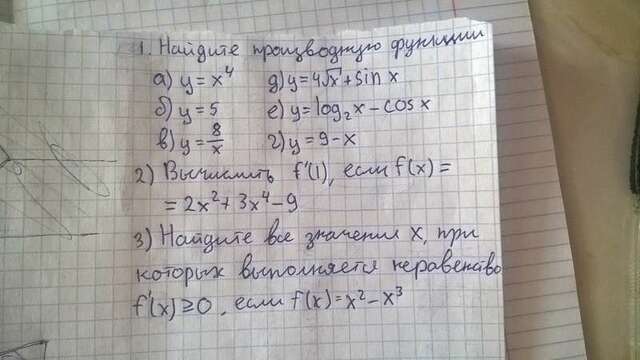 1. Найдите производную функции
а) y = x⁴ д) y = 4√x + sin x
б) y = 5 е) y = log₂x - cos x
в) y = 8/x г) y = 9 - x
2) Вычислить f'(1), если f(x) =
= 2x² + 3x⁴ - 9
3) Найдите все значения x, при
которых выполняется неравенство
f'(x) ≥ 0, если f(x) = x² - x³